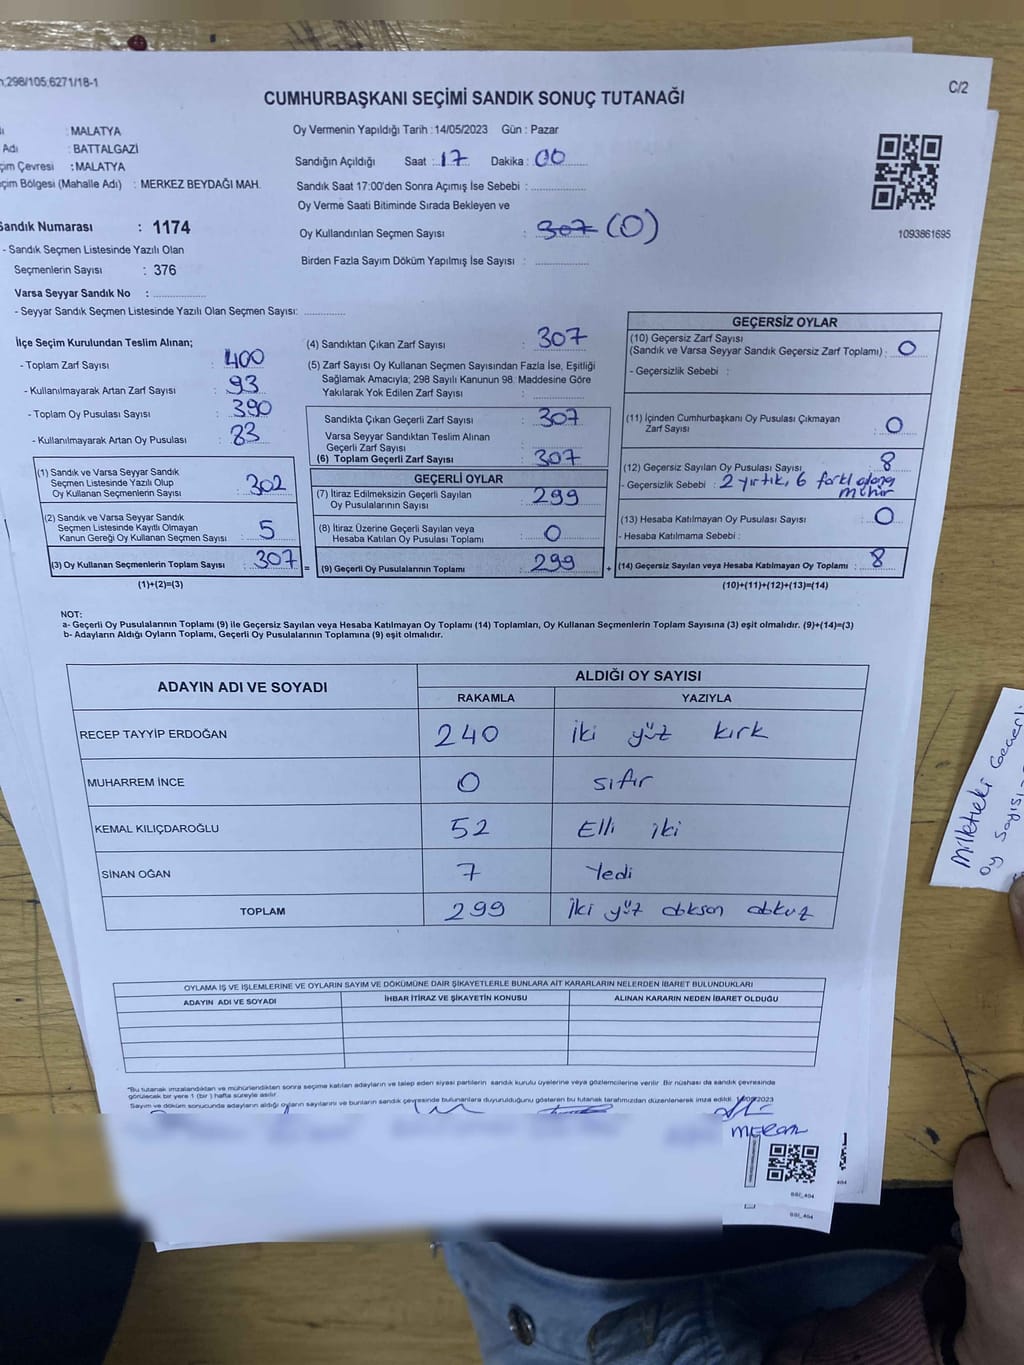 298/105;6271/18-1
C/2
CUMHURBAŞKANI SEÇİMİ SANDIK SONUÇ TUTANAĞI
: MALATYA
Adı : BATTALGAZİ
Çevresi : MALATYA
Bölgesi (Mahalle Adı) : MERKEZ BEYDAĞI MAH.
Sandık Numarası : 1174
- Sandık Seçmen Listesinde Yazılı Olan
Seçmenlerin Sayısı : 376
Varsa Seyyar Sandık No :
- Seyyar Sandık Seçmen Listesinde Yazılı Olan Seçmen Sayısı:
Oy Vermenin Yapıldığı Tarih : 14/05/2023 Gün : Pazar
Sandığın Açıldığı Saat : 17 Dakika : 00
Sandık Saat 17:00'den Sonra Açımış İse Sebebi :
Oy Verme Saati Bitiminde Sırada Bekleyen ve
Oy Kullandırılan Seçmen Sayısı : 307 (0)
Birden Fazla Sayım Döküm Yapılmış İse Sayısı :
1093861695
İlçe Seçim Kurulundan Teslim Alınan;
- Toplam Zarf Sayısı : 400
- Kullanılmayarak Artan Zarf Sayısı : 93
- Toplam Oy Pusulası Sayısı : 390
- Kullanılmayarak Artan Oy Pusulası : 83
(1) Sandık ve Varsa Seyyar Sandık
Seçmen Listesinde Yazılı Olup
Oy Kullanan Seçmenlerin Sayısı : 302
(2) Sandık ve Varsa Seyyar Sandık
Seçmen Listesinde Kayıtlı Olmayan
Kanun Gereği Oy Kullanan Seçmen Sayısı : 5
(3) Oy Kullanan Seçmenlerin Toplam Sayısı : 307
(1)+(2)=(3)
(4) Sandıktan Çıkan Zarf Sayısı : 307
(5) Zarf Sayısı Oy Kullanan Seçmen Sayısından Fazla İse, Eşitliği
Sağlamak Amacıyla; 298 Sayılı Kanunun 98. Maddesine Göre
Yakılarak Yok Edilen Zarf Sayısı :
Sandıkta Çıkan Geçerli Zarf Sayısı : 307
Varsa Seyyar Sandıktan Teslim Alınan
Geçerli Zarf Sayısı :
(6) Toplam Geçerli Zarf Sayısı : 307
GEÇERLİ OYLAR
(7) İtiraz Edilmeksizin Geçerli Sayılan
Oy Pusulalarının Sayısı : 299
(8) İtiraz Üzerine Geçerli Sayılan veya
Hesaba Katılan Oy Pusulası Toplamı : 0
= (9) Geçerli Oy Pusulalarının Toplamı : 299 +
GEÇERSİZ OYLAR
(10) Geçersiz Zarf Sayısı
(Sandık ve Varsa Seyyar Sandık Geçersiz Zarf Toplamı) : 0
- Geçersizlik Sebebi :
(11) İçinden Cumhurbaşkanı Oy Pusulası Çıkmayan
Zarf Sayısı : 0
(12) Geçersiz Sayılan Oy Pusulası Sayısı : 8
- Geçersizlik Sebebi : 2 yırtık, 6 farklı alana
mühür
(13) Hesaba Katılmayan Oy Pusulası Sayısı : 0
- Hesaba Katılmama Sebebi :
(14) Geçersiz Sayılan veya Hesaba Katılmayan Oy Toplamı : 8
(10)+(11)+(12)+(13)=(14)
NOT:
a- Geçerli Oy Pusulalarının Toplamı (9) ile Geçersiz Sayılan veya Hesaba Katılmayan Oy Toplamı (14) Toplamları, Oy Kullanan Seçmenlerin Toplam Sayısına (3) eşit olmalıdır. (9)+(14)=(3)
b- Adayların Aldığı Oyların Toplamı, Geçerli Oy Pusulalarının Toplamına (9) eşit olmalıdır.
ADAYIN ADI VE SOYADI ALDIĞI OY SAYISI
RAKAMLA YAZIYLA
RECEP TAYYİP ERDOĞAN 240 iki yüz kırk
MUHARREM İNCE 0 sıfır
KEMAL KILIÇDAROĞLU 52 Elli iki
SİNAN OĞAN 7 Yedi
TOPLAM 299 iki yüz doksan dokuz
OYLAMA İŞ VE İŞLEMLERİNE VE OYLARIN SAYIM VE DÖKÜMÜNE DAİR ŞİKAYETLERLE BUNLARA AİT KARARLARIN NELERDEN İBARET BULUNDUKLARI
ADAYIN ADI VE SOYADI İHBAR İTİRAZ VE ŞİKAYETİN KONUSU ALINAN KARARIN NEDEN İBARET OLDUĞU
"Bu tutanak imzalandıktan ve mühürlendikten sonra seçime katılan adayların ve talep eden siyasi partilerin sandık kurulu üyelerine veya gözlemcilerine verilir. Bir nüshası da sandık çevresinde
görülecek bir yere 1 (bir) hafta süreyle asılır.
Sayım ve döküm sonucunda adayların aldığı oyların sayılarını ve bunların sandık çevresinde bulunanlara duyurulduğunu gösteren bu tutanak tarafımızdan düzenlenerek imza edildi.
MERAL
Milletveki Geçerli
oy sayısı